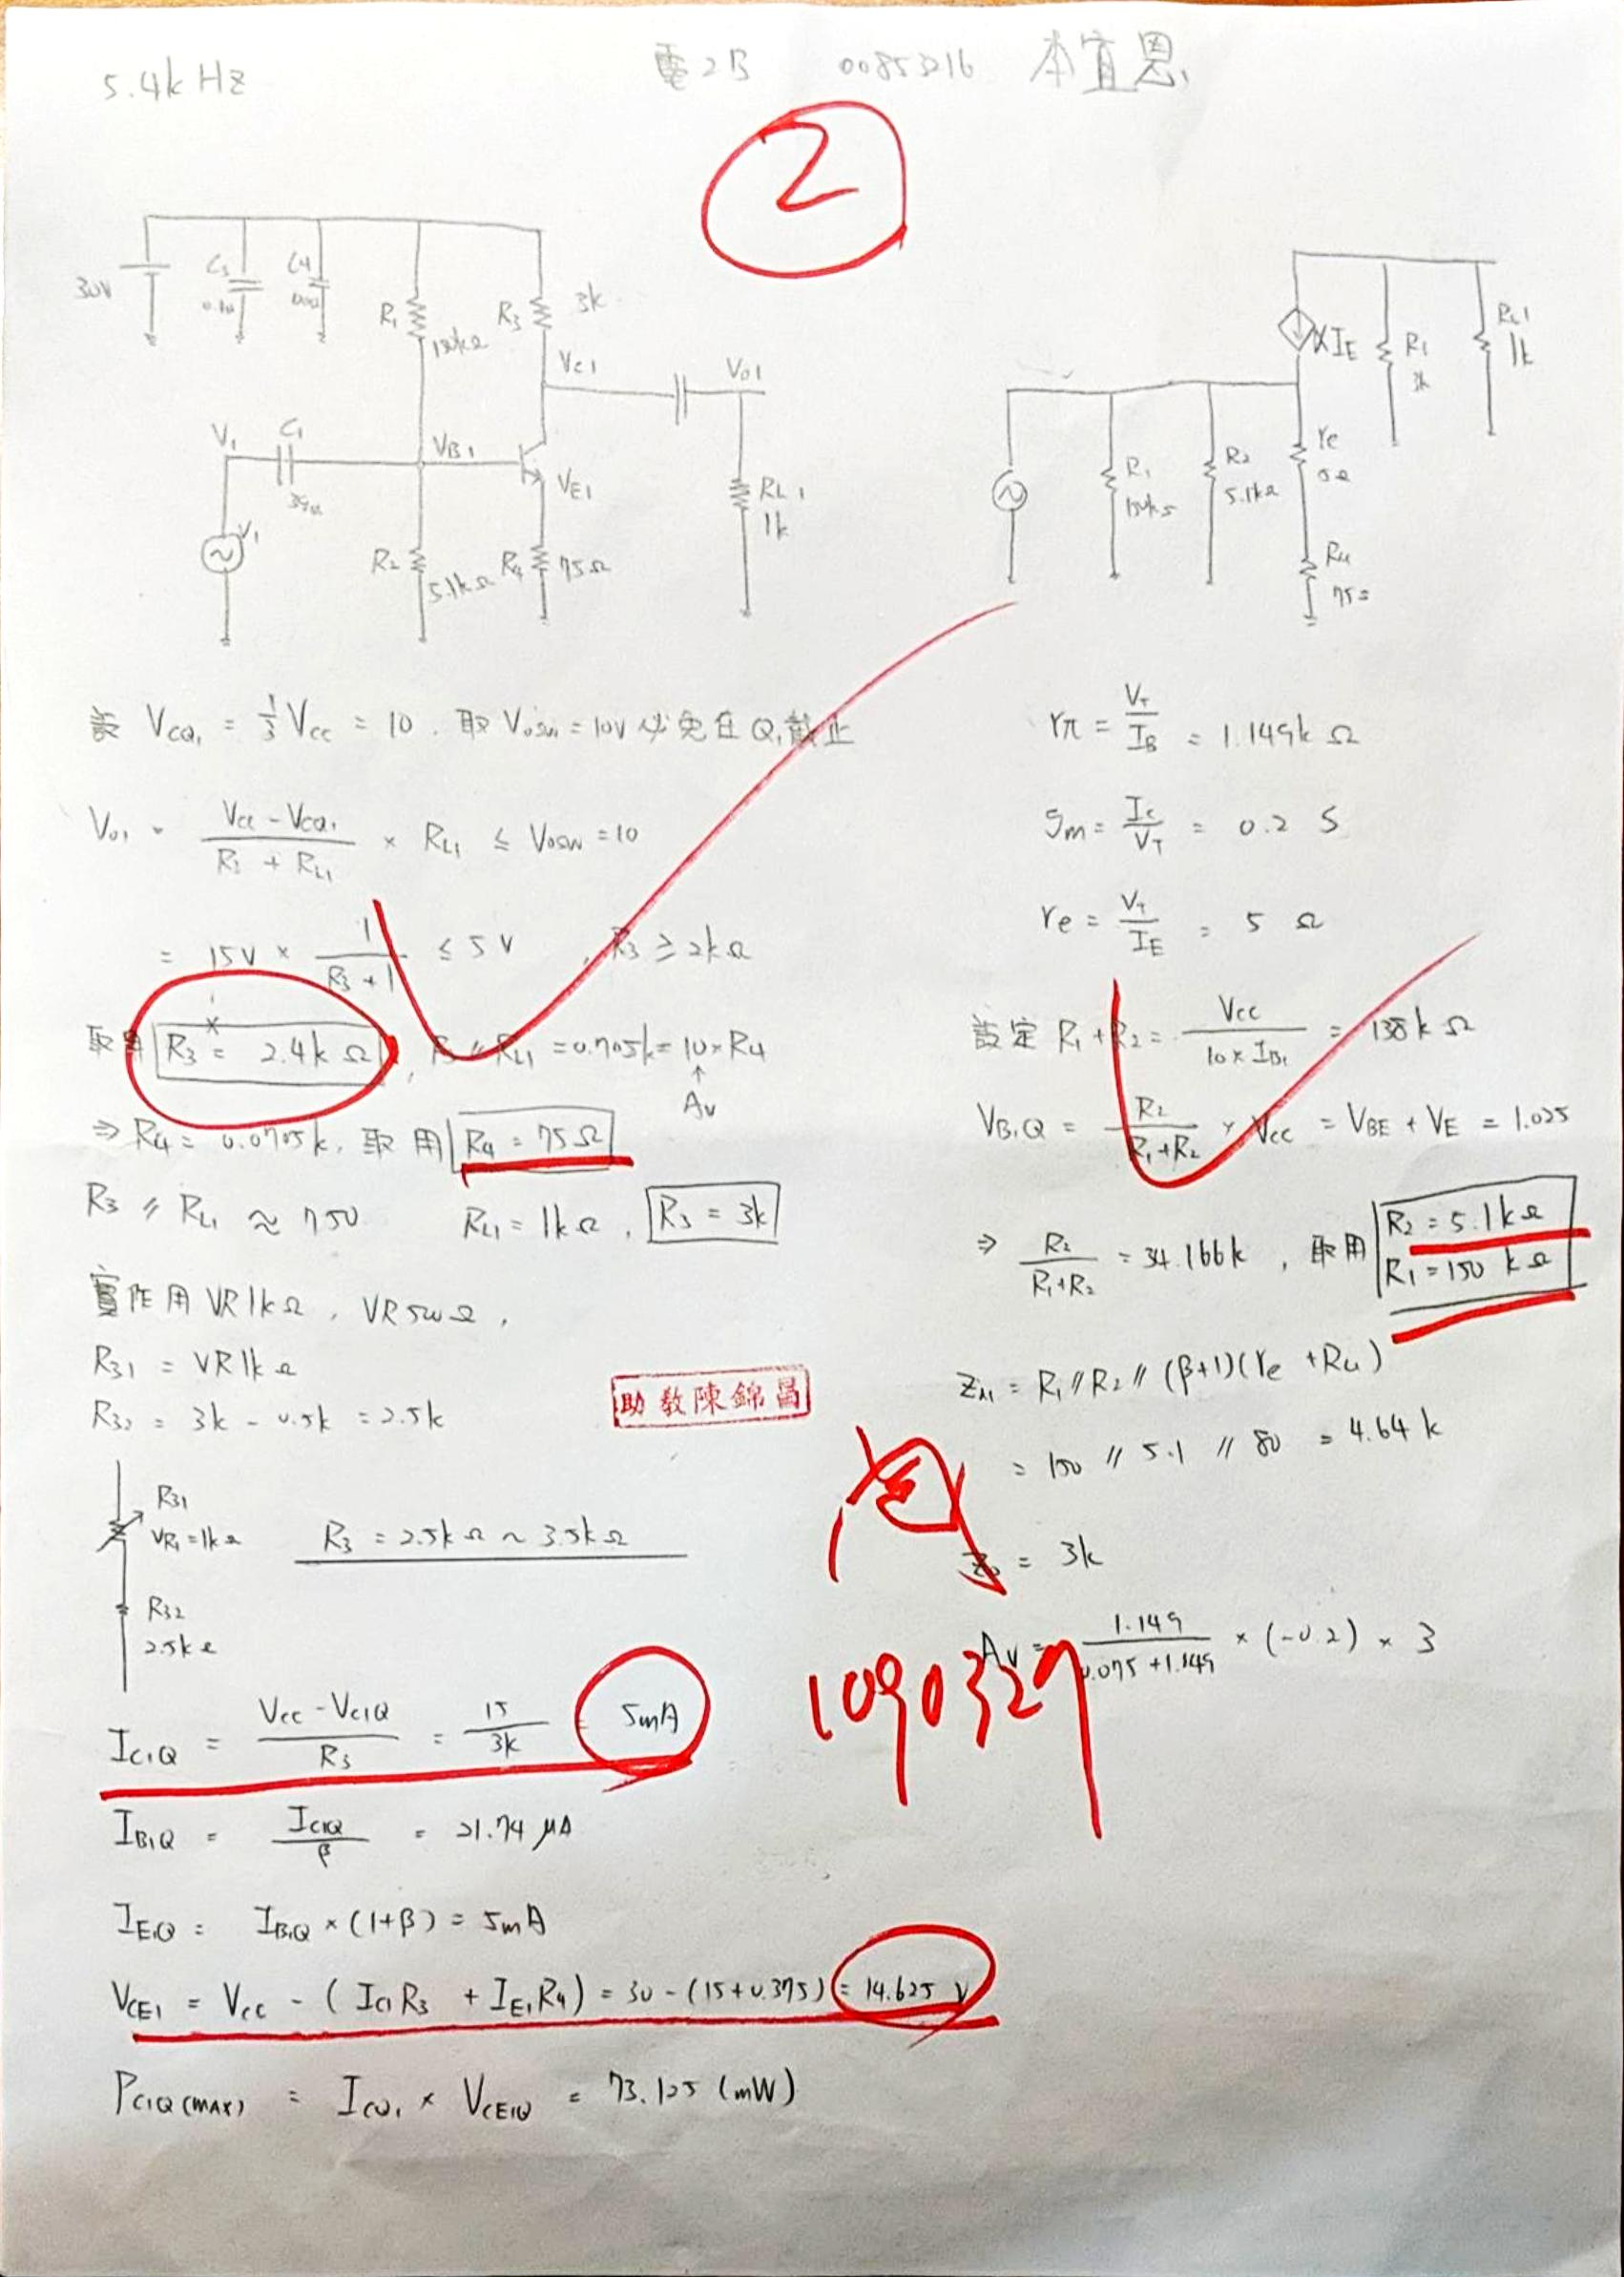 5.4k Hz
電2B 00853216 本宜恩
2
30V
C3
C4
R1
R3 3k
VC1
Vo1
V1 C1
VB1
VE1
RL1
1k
V1
R2
5.1kΩ
R4 75Ω
αIE
R1
RL1
1k
R1
R2
5.1kΩ
re
R4
設 VCQ1 = 1/3 Vcc = 10 . 取 Vosw = 10V 必免在 Q1 截止
Vo1 = (Vcc - VCQ1)/(R3 + RL1) × RL1 ≤ Vosw = 10
= 15V × 1/(R3 + 1) ≤ 5V , R3 ≥ 2kΩ
取用 R3 = 2.4kΩ , R3 // RL1 = 0.705k = 10 × R4
↑
Av
⇒ R4 = 0.0705k, 取用 R4 = 75Ω
R3 // RL1 ≈ 750 RL1 = 1kΩ , R3 = 3k
實作用 VR1kΩ , VR500Ω ,
R31 = VR1kΩ
R32 = 3k - 0.5k = 2.5k
R31
VR1 = 1kΩ
R3 = 2.5kΩ ~ 3.5kΩ
R32
2.5kΩ
IC1Q = (Vcc - VC1Q)/R3 = 15/3k = 5mA
IB1Q = IC1Q/β = 21.74 μA
IE1Q = IB1Q × (1+β) = 5mA
VCE1 = Vcc - ( IC1R3 + IE1R4 ) = 30 - (15+0.375) = 14.625 V
PC1Q(MAX) = ICQ1 × VCE1Q = 73.125 (mW)
rπ = VT/IB = 1.149k Ω
gm = Ic/VT = 0.2 S
re = VT/IE = 5 Ω
設定 R1 + R2 = Vcc/(10×IB1) = 138k Ω
VB1Q = R2/(R1+R2) × Vcc = VBE + VE = 1.075
⇒ R2/(R1+R2) = 34.166k , 取用 R2 = 5.1kΩ
R1 = 150 kΩ
Zi1 = R1 // R2 // (β+1)(re + R4)
= 150 // 5.1 // 80 = 4.64 k
Zo = 3k
Av = 1.149/(0.075+1.149) × (-0.2) × 3
助教陳錦昌
1090329